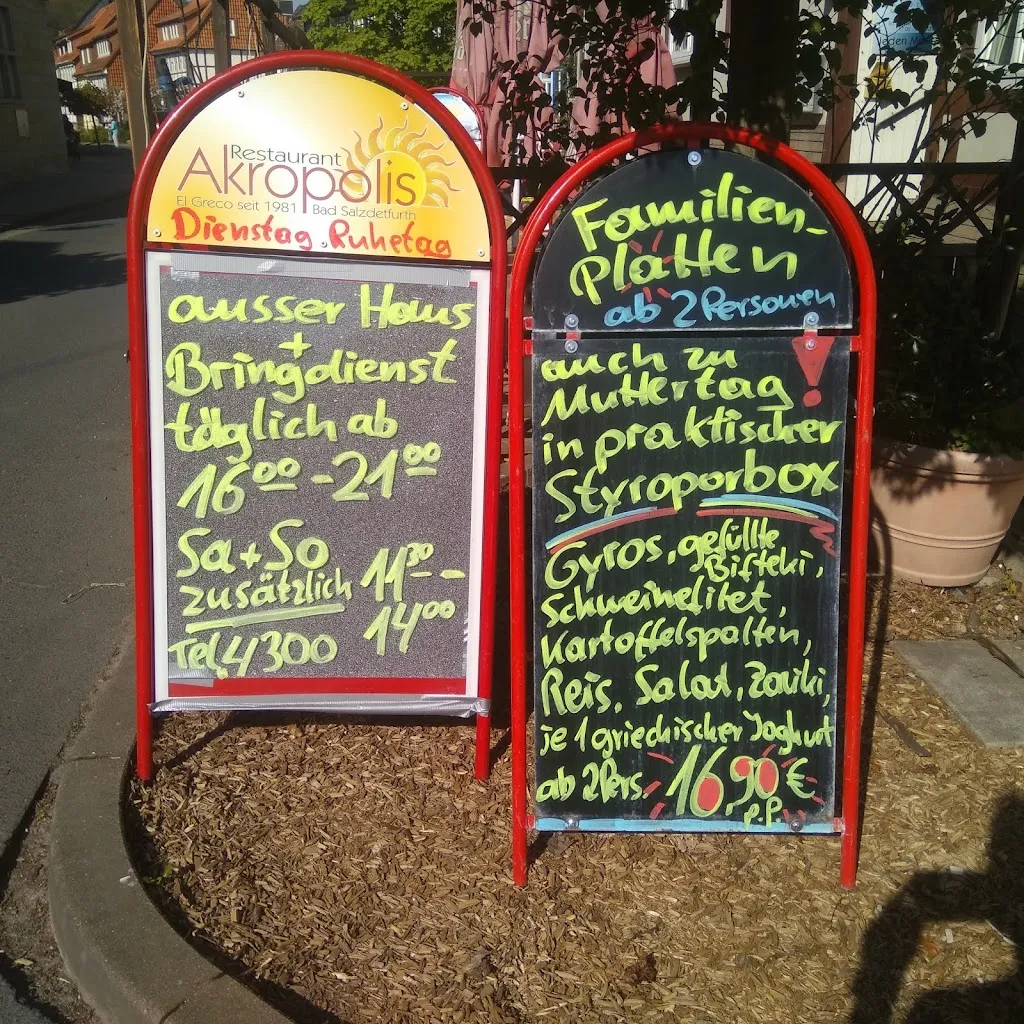 Restaurant
Akropolis
El Greco seit 1981 Bad Salzdetfurth
Dienstag Ruhetag
ausser Haus
+
Bringdienst
täglich ab
16⁰⁰ - 21⁰⁰
Sa + So
zusätzlich 11³⁰ - -
14⁰⁰
Tel. 4300
Familien-
Platten
ab 2 Personen
auch zu
Muttertag !
in praktischer
Styroporbox
Gyros, gefüllte
Bifteki,
Schweinefilet,
Kartoffelspalten,
Reis, Salat, Zaziki,
je 1 griechischer Joghurt
ab 2 Pers. 16,90 €
p.P.
jeden